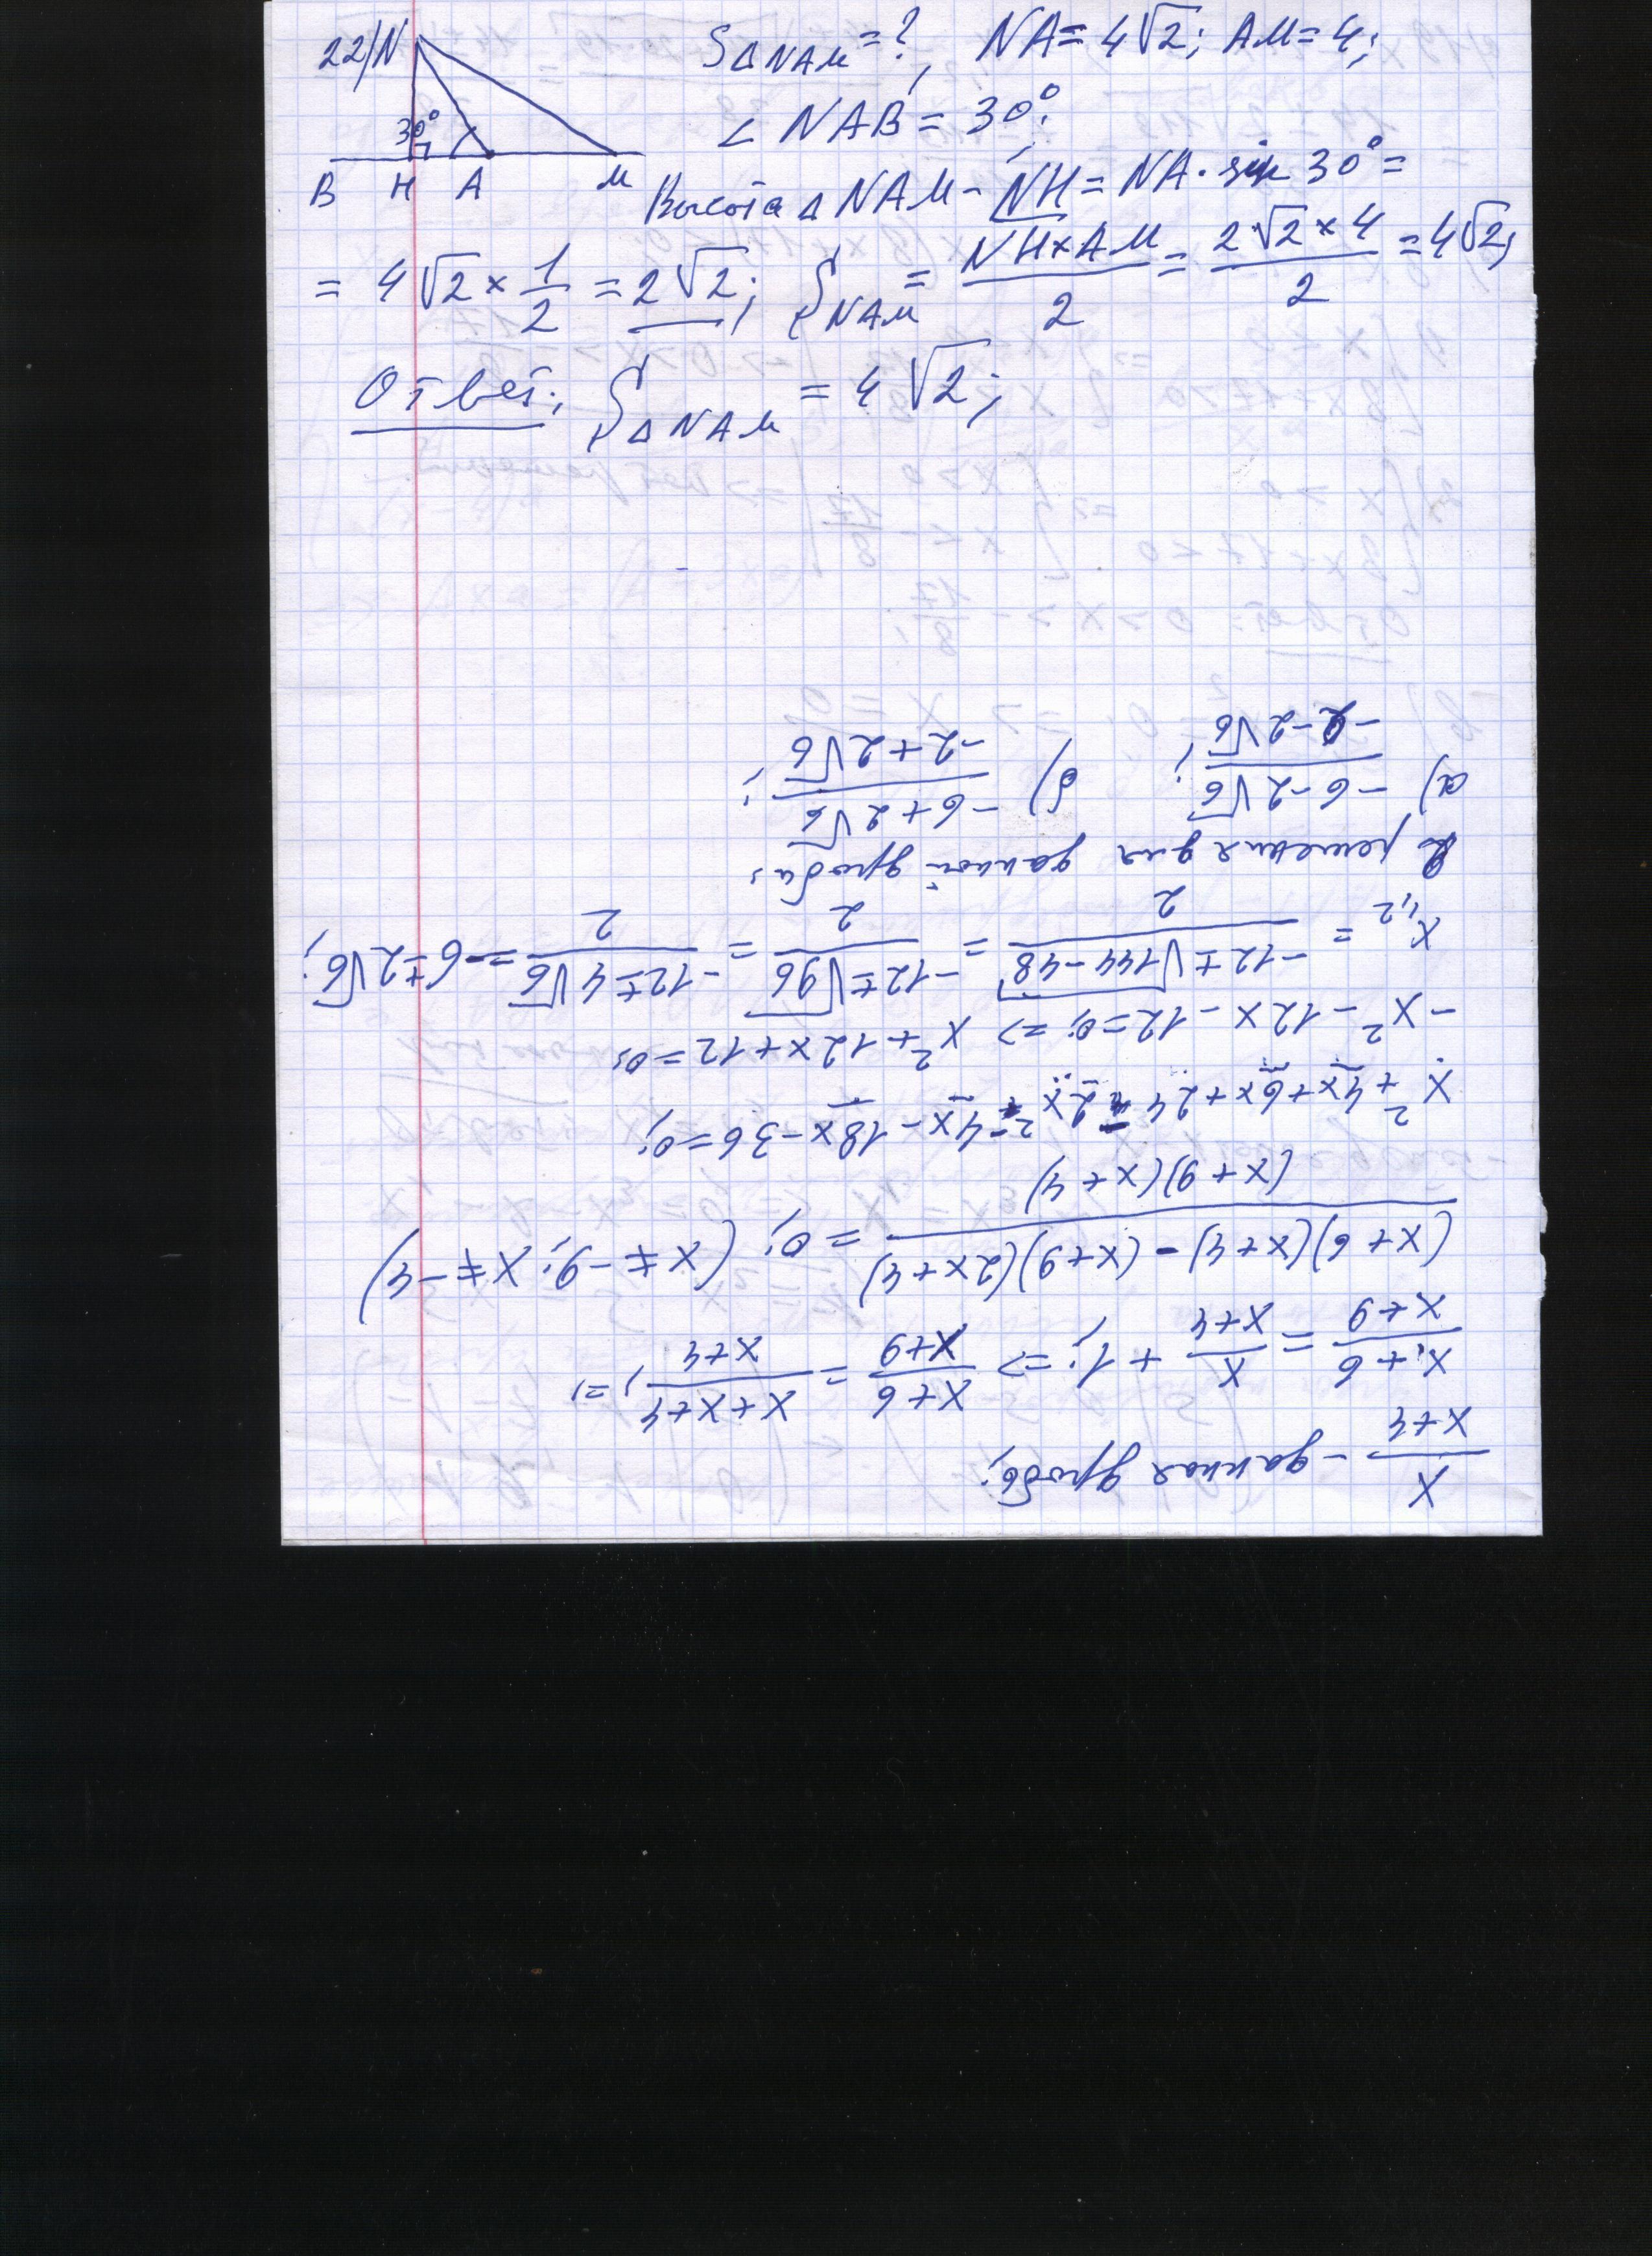 22) N S△NAM = ?, NA = 4√2; AM = 4;
30° ∠ NAB = 30°;
B H A M Высота △ NAM - NH = NA · sin 30° =
= 4√2 × 1/2 = 2√2; S NAM = NH×AM/2 = 2√2×4/2 = 4√2;
Ответ: S△NAM = 4√2;
x/(x+4) - данная дробь;
(x+6)/(x+9) = x/(x+4) + 1; => (x+6)/(x+9) = (x+x+4)/(x+4); =>
((x+6)(x+4) - (x+9)(2x+4))/((x+9)(x+4)) = 0; (x ≠ -9; x ≠ -4)
x² + 4x + 6x + 24 - 2x² - 4x - 18x - 36 = 0;
- x² - 12x - 12 = 0; => x² + 12x + 12 = 0;
x1,2 = (-12 ± √144-48)/2 = (-12 ± √96)/2 = (-12 ± 4√6)/2 = -6 ± 2√6;
2 решения для данной дроби:
а) (-6 - 2√6)/(-2 - 2√6); б) (-6 + 2√6)/(-2 + 2√6);